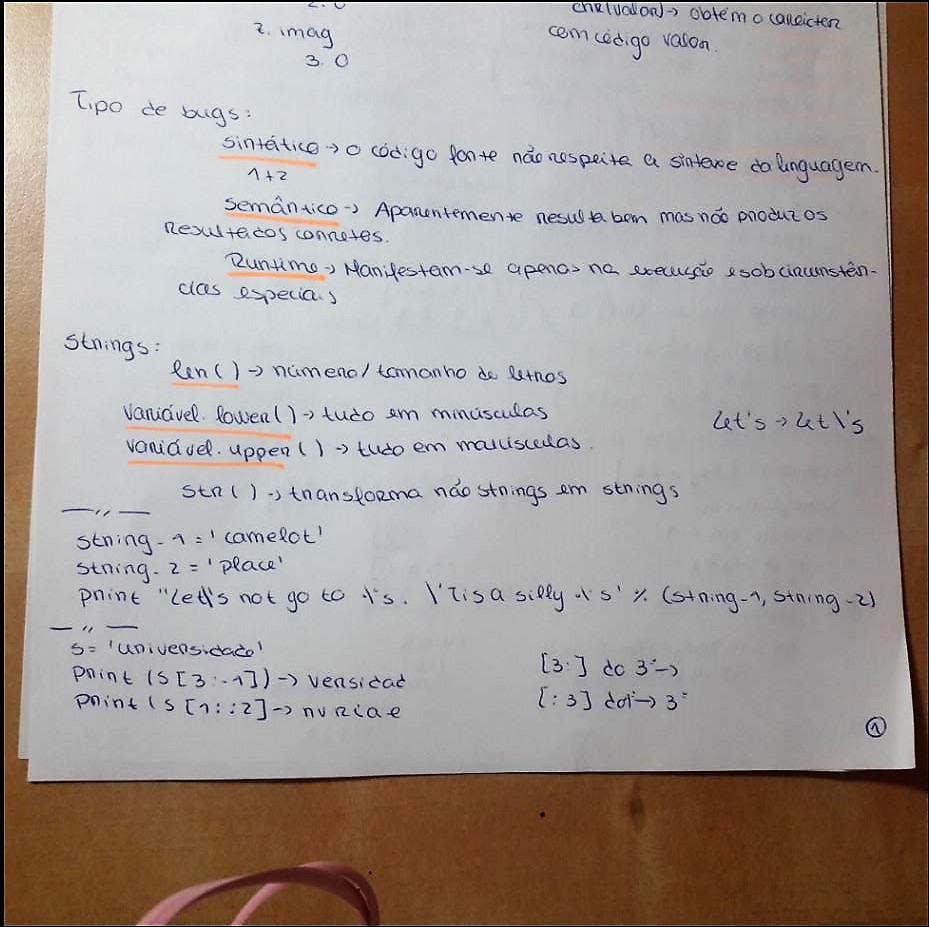 2. 0
z. imag
3. 0
chr(valor) → obtém o carácter
com código valor.
Tipo de bugs:
sintático → o código fonte não respeita a sintaxe da linguagem.
1+2
semântico → Aparentemente resulta bem mas não produz os
resultados corretos.
Runtime → Manifestam-se apenas na execução e sob circunstân-
cias especiais
Strings:
len( ) → número/tamanho de letras
variável.lower( ) → tudo em minúsculas
let's → let\'s
variável.upper( ) → tudo em maiúsculas.
str( ) → transforma não strings em strings
— ,, —
string-1 = 'camelot'
string-2 = 'place'
print "Let\'s not go to %s. \'Tis a silly %s' % (string-1, string-2)
— ,, —
s = 'universidade'
print (s[3:-1]) → versidad
print (s[1::2] → nvriae
[3:] do 3º →
[:3] do 1º → 3º
1